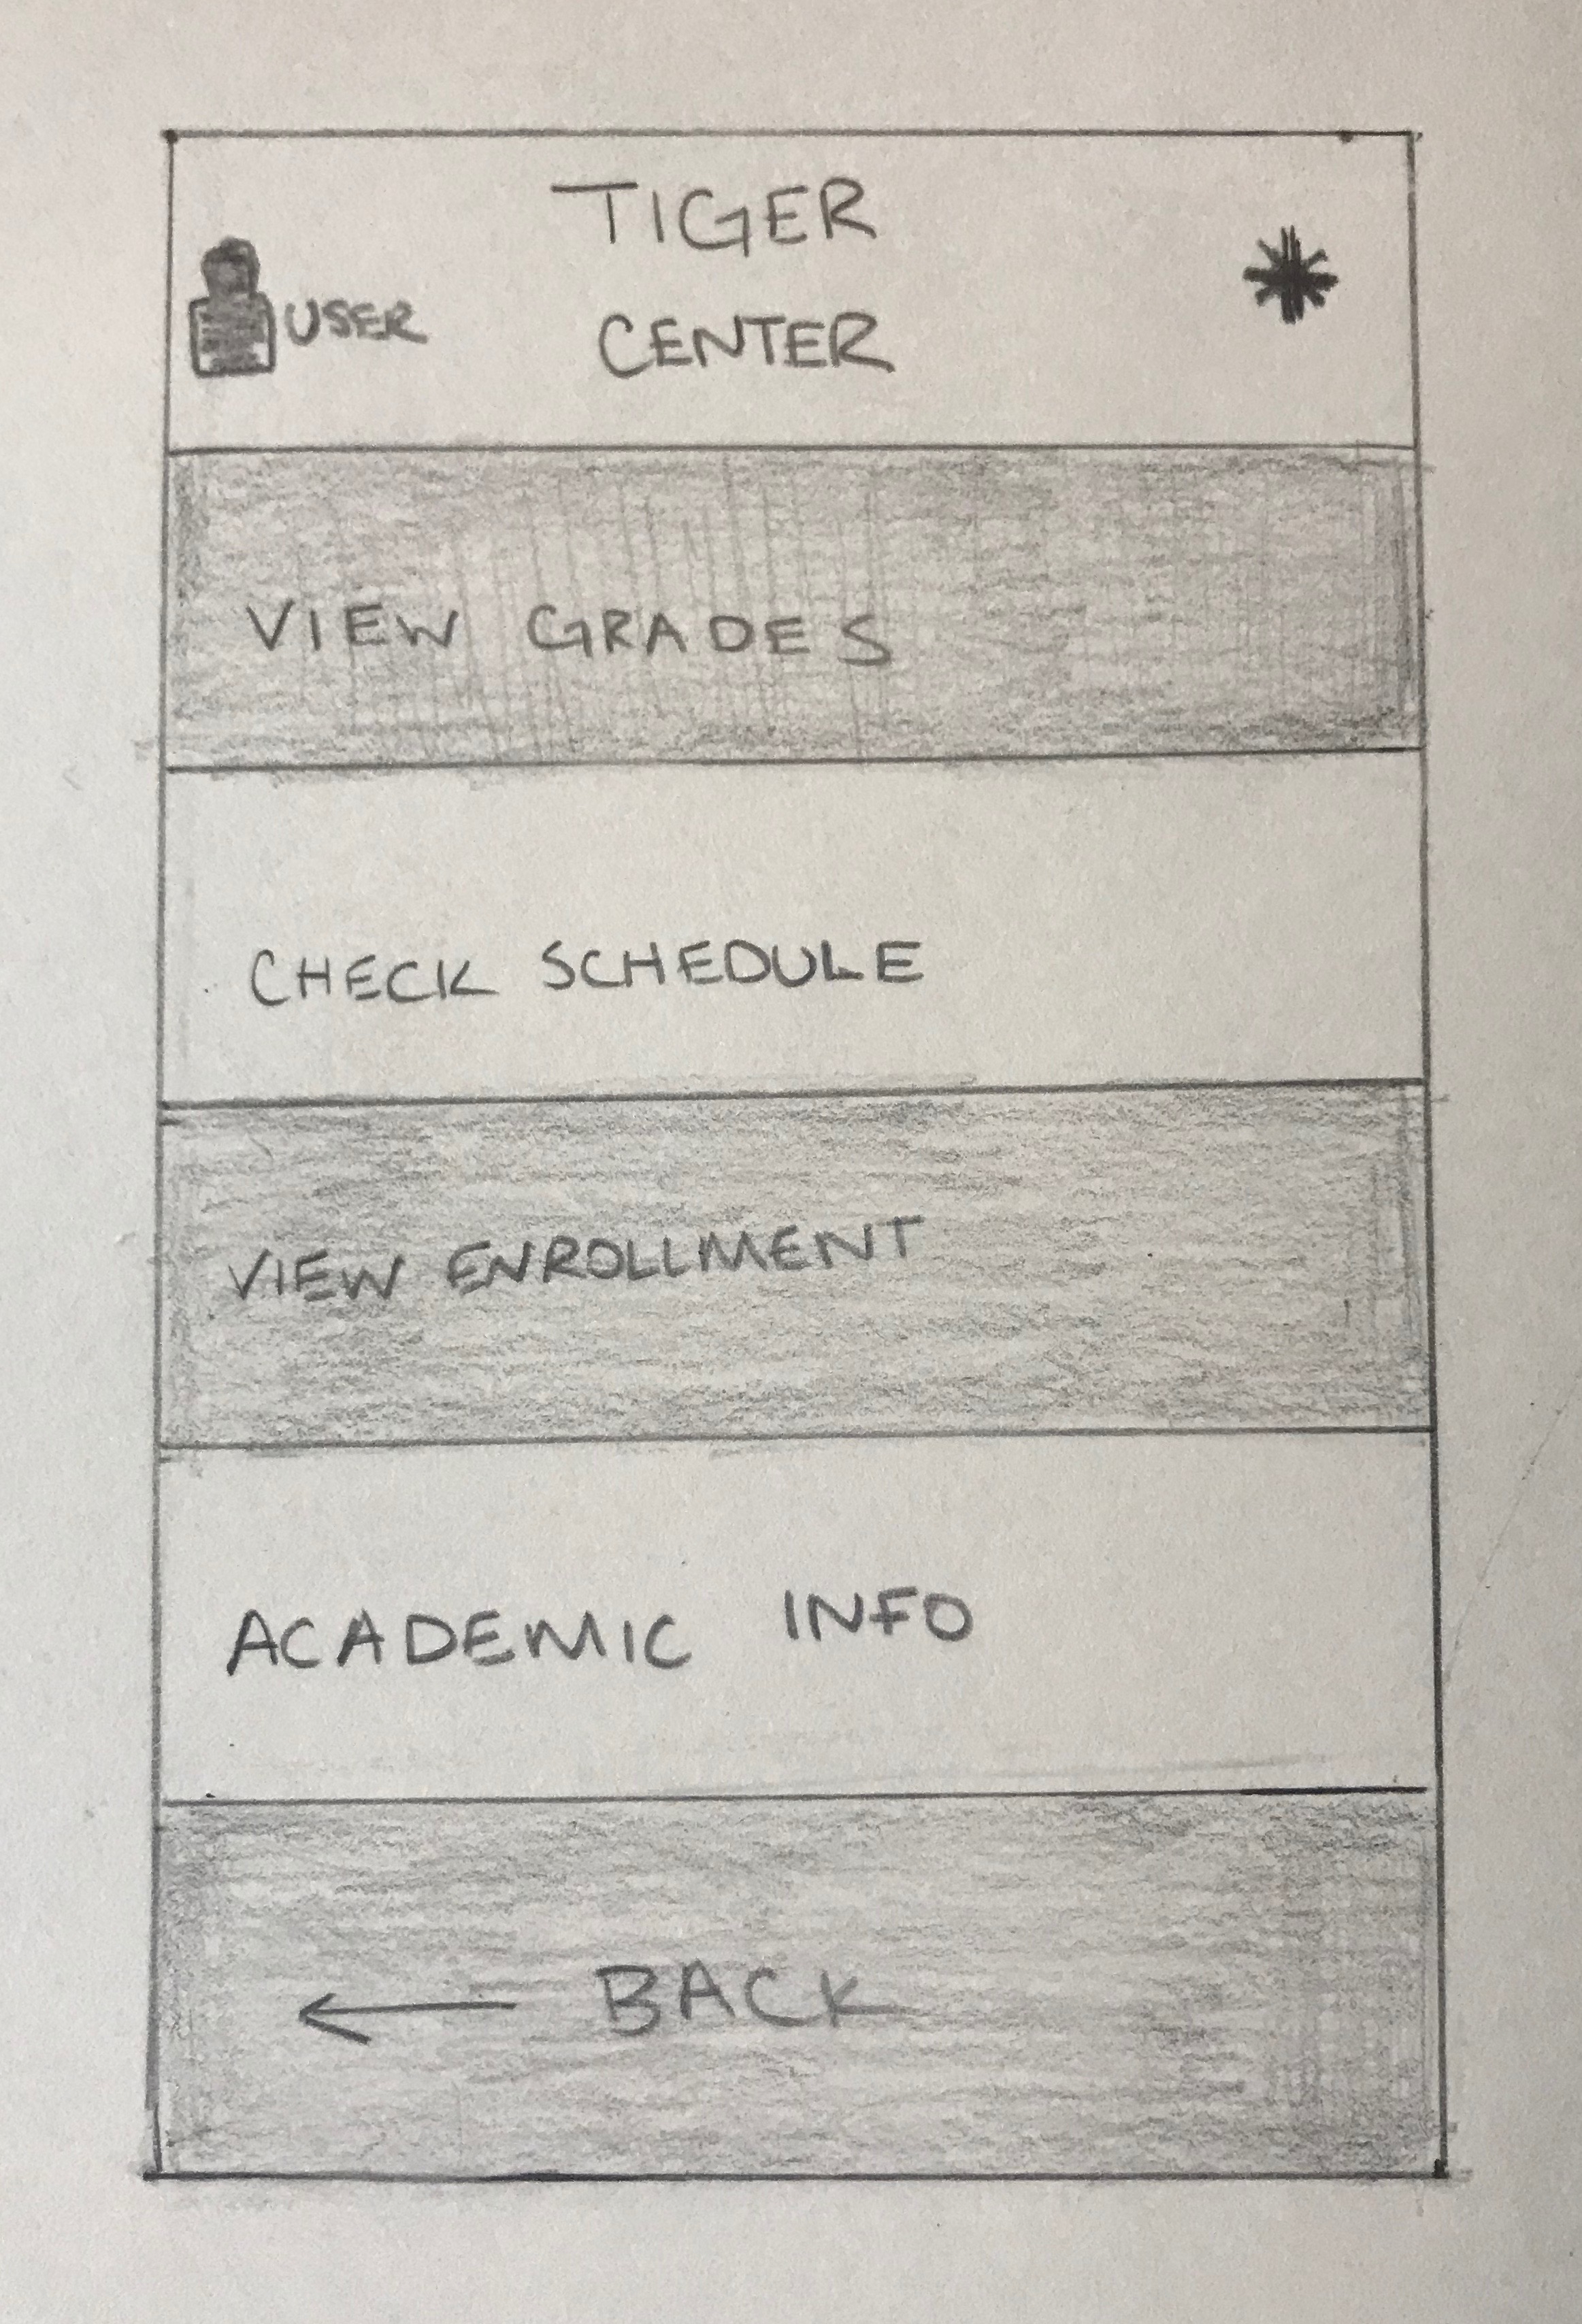 TIGER
USER
CENTER
VIEW GRADES
CHECK SCHEDULE
VIEW ENROLLMENT
ACADEMIC INFO
← BACK